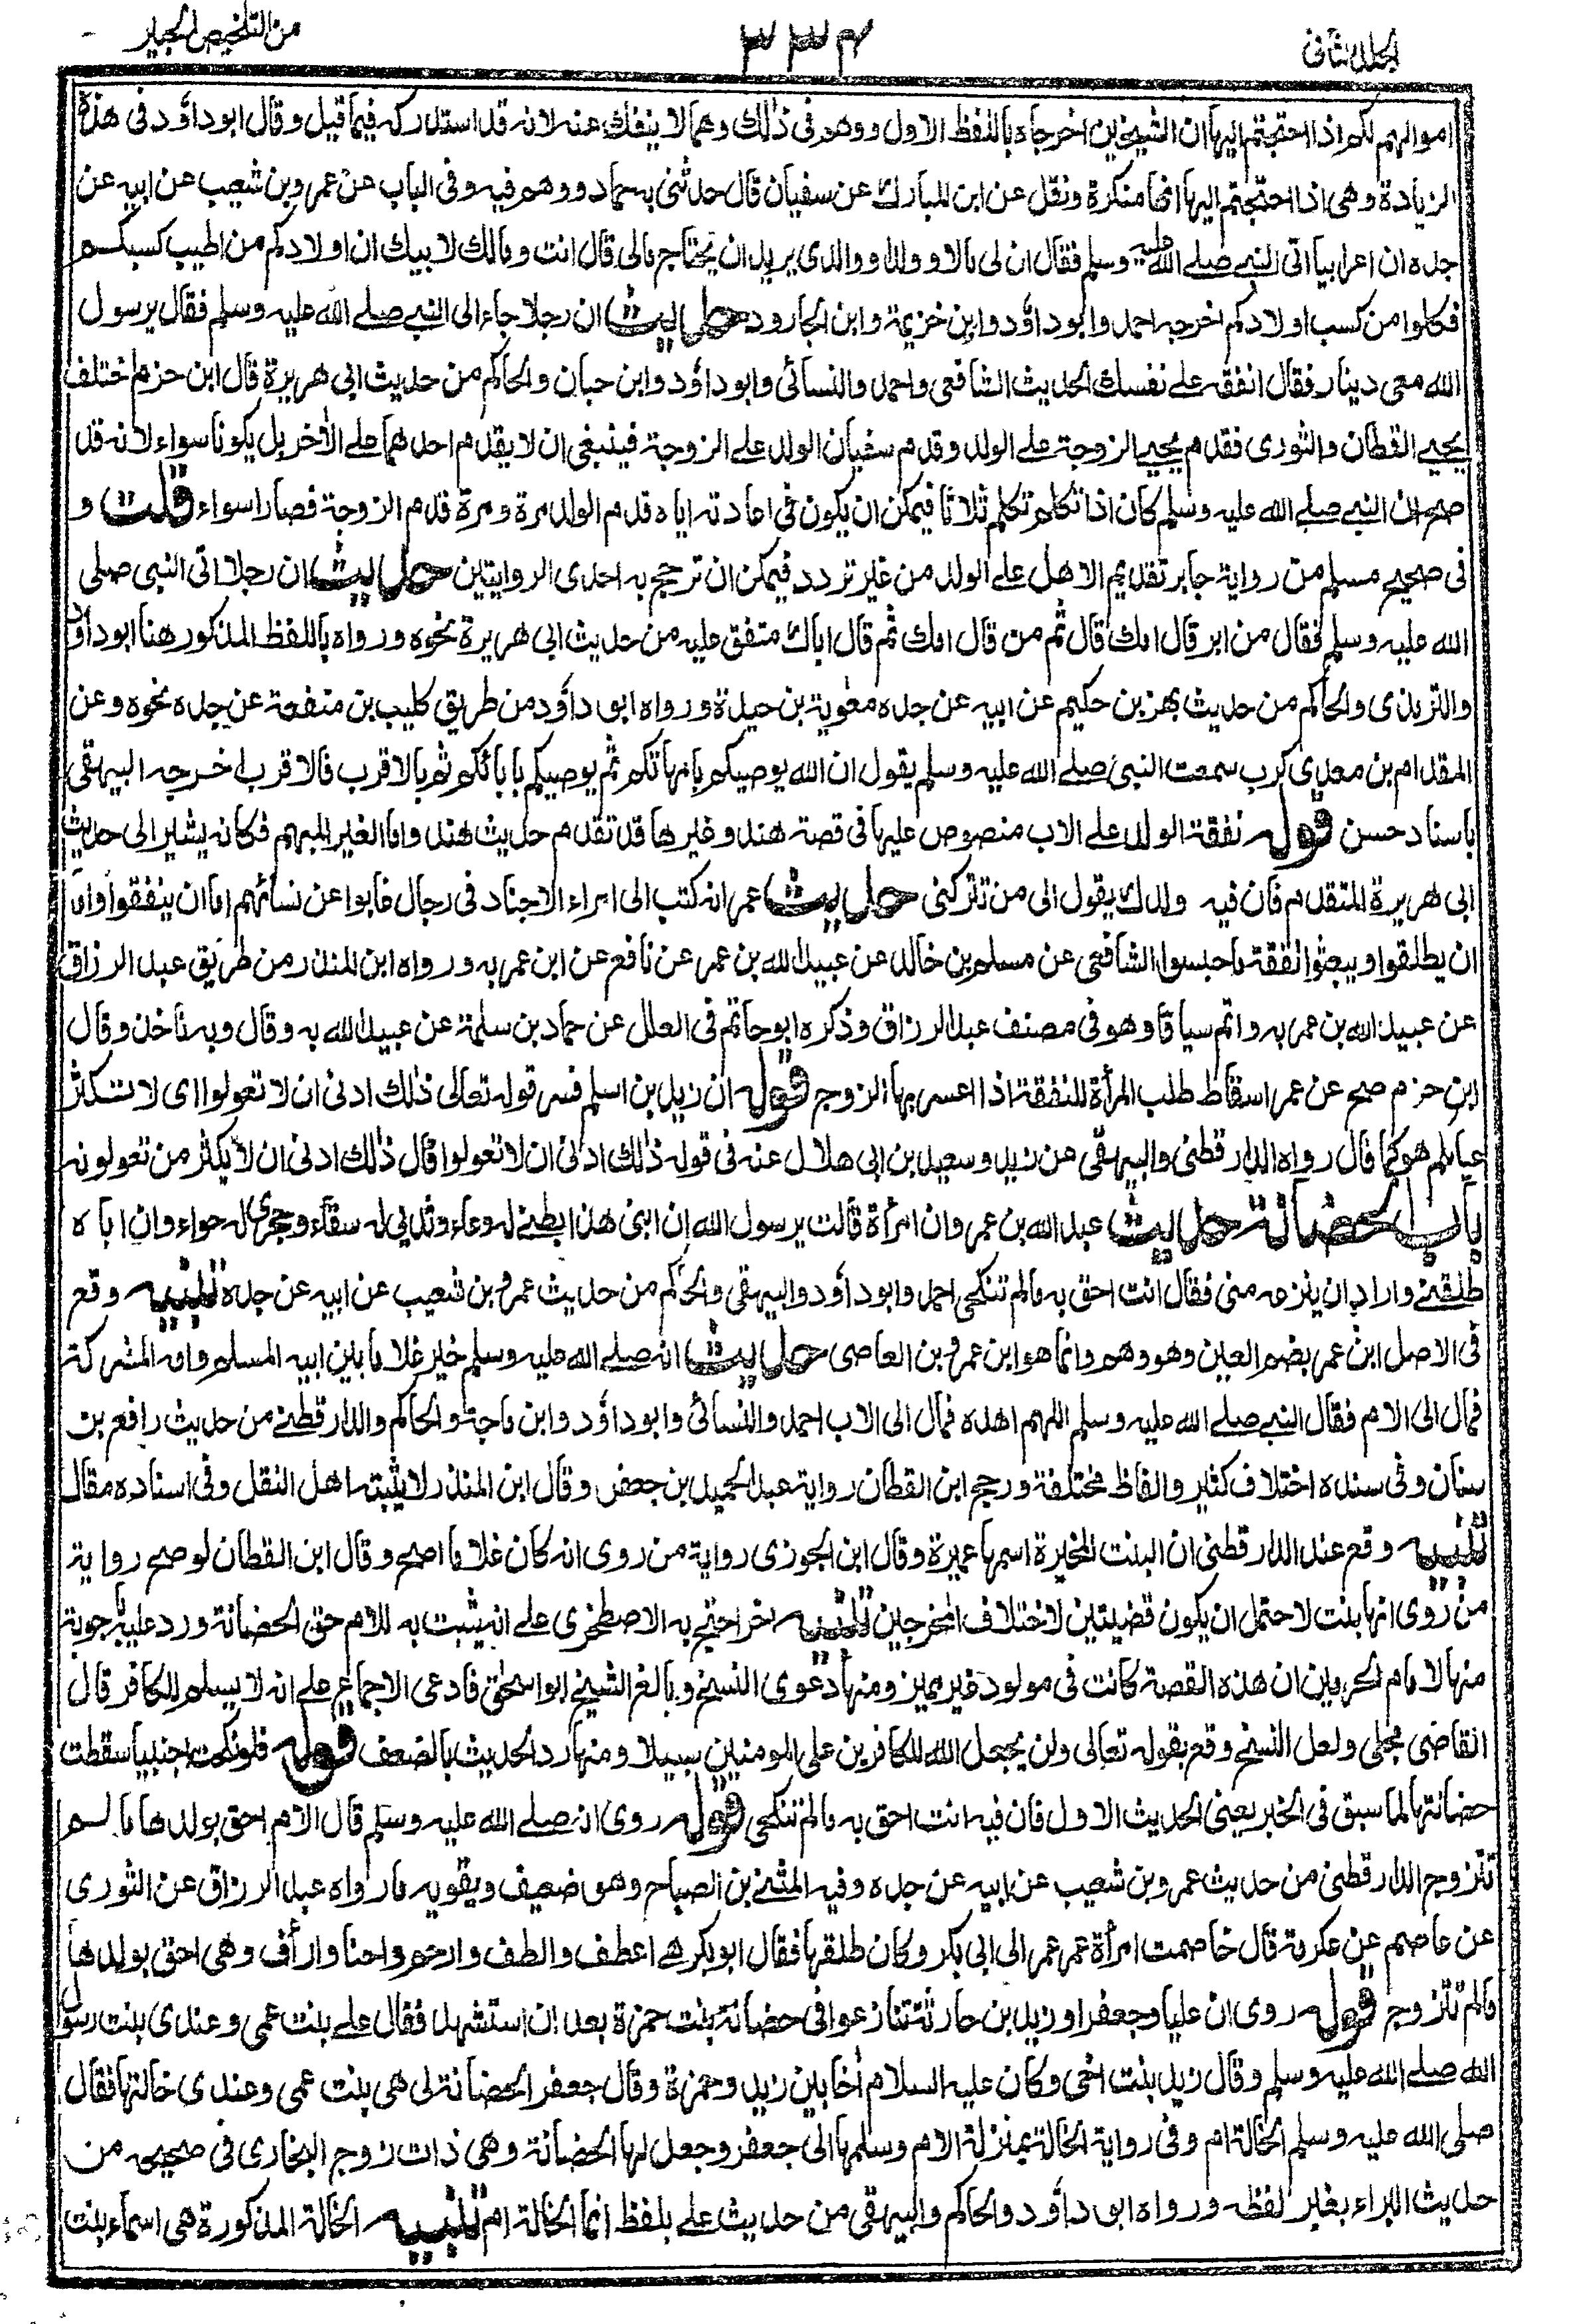 الجلد الثانى
٣٣٤
من التلخيص الحبير
اموالهم لكم اذا احتجتم اليها ان الشيخين اخرجاه باللفظ الاول ووهم فى ذلك وهما لا ينفك عنه لانه قد استدركه فيما قيل وقال ابو داؤد فى هذه
الزيادة وهى اذا احتجتم اليها انها منكرة ونقل عن ابن المبارك عن سفيان قال حدثنى به حماد ووهم فيه وفى الباب عن عمرو بن شعيب عن ابيه عن
جده ان اعرابيا اتى النبى صلى الله عليه وسلم فقال ان لى مالا وولدا ووالدى يريد ان يجتاح مالى قال انت ومالك لابيك ان اولادكم من اطيب كسبكم
فكلوا من كسب اولادكم اخرجه احمد وابو داؤد وابن خزيمة وابن الجارود حديث ان رجلا جاء الى النبى صلى الله عليه وسلم فقال يرسول
الله معى دينار فقال انفقه على نفسك الحديث الشافعى واحمد والنسائى وابو داؤد وابن حبان والحاكم من حديث ابى هريرة قال ابن حزم اختلف
يحيى القطان والثورى فقدم يحيى الزوجة على الولد وقدم سفيان الولد على الزوجة فينبغى ان لا يقدم احدهما على الاخر بل يكونا سواء لانه قد
صح ان النبى صلى الله عليه وسلم كان اذا تكلم تكلم ثلاثا فيمكن ان يكون فى اعادته اياه قدم الولد مرة ومرة قدم الزوجة فصارا سواء قلت و
فى صحيح مسلم من رواية جابر تقديم الاهل على الولد من غير تردد فيمكن ان ترجح به احدى الروايتين حديث ان رجلا اتى النبى صلى
الله عليه وسلم فقال من ابر قال امك قال ثم من قال امك ثم قال اباك متفق عليه من حديث ابى هريرة نحوه ورواه باللفظ المذكور هنا ابو داؤد
والترمذى والحاكم من حديث بهز بن حكيم عن ابيه عن جده معوية بن حيدة ورواه ابو داؤد من طريق كليب بن منفعة عن جده نحوه وعن
المقدام بن معدى كرب سمعت النبى صلى الله عليه وسلم يقول ان الله يوصيكم بامهاتكم ثم يوصيكم بابائكم ثم بالاقرب فالاقرب اخرجه البيهقى
باسناد حسن قوله نفقة الولد على الاب منصوص عليها فى قصة هند وغيرها قد تقدم حديث هند واما الغير المبهم فكانه يشير الى حديث
ابى هريرة المتقدم فان فيه ولدك يقول الى من تتركنى حديث عمر انه كتب الى امراء الاجناد فى رجال غابوا عن نسائهم اما ان ينفقوا واما
ان يطلقوا ويبعثوا نفقة ما حبسوا الشافعى عن مسلم بن خالد عن عبيد الله بن عمر عن نافع عن ابن عمر به ورواه ابن المنذر من طريق عبد الرزاق
عن عبيد الله بن عمر به واتم سياقا وهو فى مصنف عبد الرزاق وذكره ابو حاتم فى العلل عن حماد بن سلمة عن عبيد الله به وقال وبه ناخذ وقال
ابن حزم صح عن عمر اسقاط طلب المرأة للنفقة اذا اعسر بها الزوج قوله ان زيد بن اسلم فسر قوله تعالى ذلك ادنى ان لا تعولوا اى لا تكثر
عيالكم هو كما قال رواه الدارقطنى والبيهقى من زيد وسعيد بن ابى هلال عنه فى قوله ذلك ادنى ان لا تعولوا قال ذلك ادنى ان لا يكثر من تعولونه
باب الحضانة حديث عبد الله بن عمر وان امرأة قالت يرسول الله ان ابنى هذا بطنى له وعاء وثديى له سقاء وحجرى له حواء وان اباه
طلقنى واراد ان ينزعه منى فقال انت احق به مالم تنكحى احمد وابو داؤد والبيهقى والحاكم من حديث عمرو بن شعيب عن ابيه عن جده تنبيه وقع
فى الاصل ابن عمر بضم العين وهو وهم وانما هو ابن عمرو بن العاصى حديث انه صلى الله عليه وسلم خير غلاما بين ابيه المسلم وامه المشركة
فمال الى الام فقال النبى صلى الله عليه وسلم اللهم اهده فمال الى الاب احمد والنسائى وابو داؤد وابن ماجة والحاكم والدارقطنى من حديث رافع بن
سنان وفى سنده اختلاف كثير والفاظ مختلفة ورجح ابن القطان رواية عبد الحميد بن جعفر وقال ابن المنذر لا يثبته اهل النقل وفى اسناده مقال
تنبيه وقع عند الدارقطنى ان البنت المخيرة اسمها عميرة وقال ابن الجوزى رواية من روى انه كان غلاما اصح وقال ابن القطان لو صح رواية
من روى انها بنت لاحتمل ان يكون قضيتين لاختلاف المخرجين تنبيه اخر احتج به الاصطخرى على انه يثبت به للام حق الحضانة ورد عليه باجوبة
منها لامام الحرمين ان هذه القصة كانت فى مولود غير مميز ومنها دعوى النسخ وبالغ الشيخ ابو اسحق فادعى الاجماع على انه لا يسلم للكافر قال
القاضى مجلى ولعل النسخ وقع بقوله تعالى ولن يجعل الله للكافرين على المومنين سبيلا ومنها رد الحديث بالضعف قوله فلو نكحت اجنبيا سقطت
حضانتها لما سبق فى الخبر يعنى الحديث الاول فان فيه انت احق به مالم تنكحى قوله روى انه صلى الله عليه وسلم قال الام احق بولدها ما لم
تتزوج الدارقطنى من حديث عمرو بن شعيب عن ابيه عن جده وفيه المثنى بن الصباح وهو ضعيف ويقويه ما رواه عبد الرزاق عن الثورى
عن عاصم عن عكرمة قال خاصمت امرأة عمر عمر الى ابى بكر وكان طلقها فقال ابو بكر هى اعطف والطف وارحم واحنا وارأف وهى احق بولدها
مالم تتزوج قوله روى ان عليا وجعفرا وزيد بن حارثة تنازعوا فى حضانة بنت حمزة بعد ان استشهد فقال على بنت عمى وعندى بنت رسول
الله صلى الله عليه وسلم وقال زيد بنت اخى وكان عليه السلام أخا بين زيد وحمزة وقال جعفر الحضانة لى هى بنت عمى وعندى خالتها فقال
صلى الله عليه وسلم الخالة ام وفى رواية الخالة بمنزلة الام وسلمها الى جعفر وجعل لها الحضانة وهى ذات زوج البخارى فى صحيحه من
حديث البراء بغير لفظه ورواه ابو داؤد والحاكم والبيهقى من حديث على بلفظ انما الخالة ام تنبيه الخالة المذكورة هى اسماء بنت